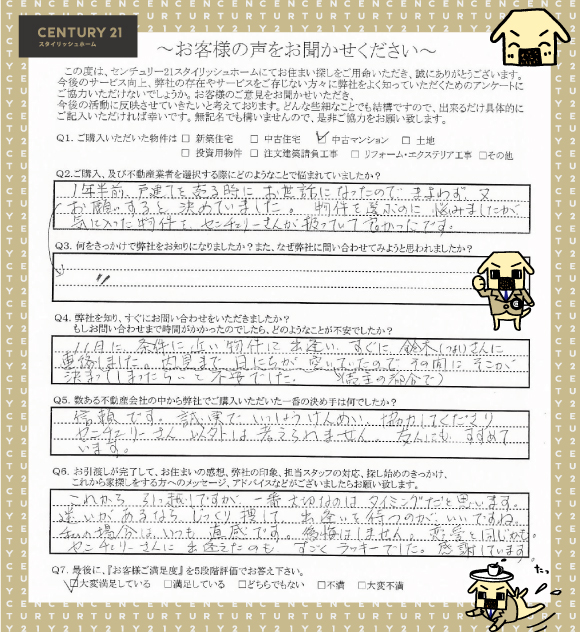 CENTURY 21
スタイリッシュホーム
～お客様の声をお聞かせください～
この度は、センチュリー21スタイリッシュホームにてお住まい探しをご用命いただき、誠にありがとうございます。
今後のサービス向上、弊社の存在やサービスをご存じない方々に弊社をよく知っていただくためのアンケートに
ご協力いただけないでしょうか。お客様のご意見をお聞かせいただき、
今後の活動に反映させていきたいと考えております。どんな些細なことでも結構ですので、出来るだけ具体的に
ご記入いただければ幸いです。無記名でも構いませんので、是非ご協力をお願い致します。
Q1. ご購入いただいた物件は □ 新築住宅 □ 中古住宅 ☑ 中古マンション □ 土地
□ 投資用物件 □ 注文建築請負工事 □ リフォーム・エクステリア工事 □その他
Q2.ご購入、及び不動産業者を選択する際にどのようなことで悩まれていましたか?
1年半前、戸建てを売る時に お世話になったので まよわず 又
お願いすると 決めていました。 物件を選ぶのに 悩みましたが
気に入った物件を、センチュリーさんが扱っていて良かったです。
Q3. 何をきっかけで弊社をお知りになりましたか?また、なぜ弊社に問い合わせてみようと思われましたか?
〃
Q4. 弊社を知り、すぐにお問い合わせをいただきましたか?
もしお問い合わせまで時間がかかったのでしたら、どのようなことが不安でしたか?
11月に、条件に近い物件に出逢い、すぐに 鈴木さんに
連絡しました。内見まで 日にちが 空いていたので その間に そこが
決まってしまったら…と 不安でした。
Q5. 数ある不動産会社の中から弊社でご購入いただいた一番の決め手は何でしたか?
信頼です。誠実で いっしょうけんめい 協力してくださり
センチュリーさん 以外は 考えられません。友人にも すすめて
います。
Q6. お引渡しが完了して、お住まいの感想、弊社の印象、担当スタッフの対応、探し始めのきっかけ、
これから家探しをする方へのメッセージ、アドバイスなどがございましたらお願い致します。
これから 引っ越しですが、一番大切なのは タイミングだと思います。
迷いがあるなら じっくり 捜す 出逢いを待つのが、いいですね。
私の場合は、いつも 直感です。後悔はしません。恋愛と同じかも。
センチュリーさんに 出逢えたのも すごくラッキーでした。感謝しています。
Q7. 最後に、『お客様ご満足度』を5段階評価でお答え下さい。
☑大変満足している □満足している □どちらでもない □不満 □大変不満
たっ